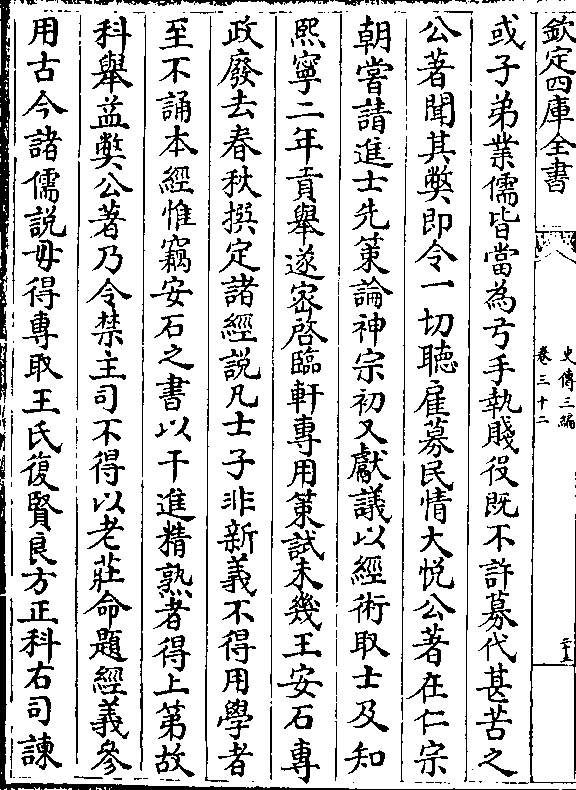 欽定四庫全書
史傳三編
卷三十二
或子弟業儒皆當為弓手執賤役既不許募代甚苦之
公著聞其弊即令一切聽雇募民情大悅公著在仁宗
朝嘗請進士先策論神宗初又獻議以經術取士及知
熙寧二年貢舉遂密啓臨軒專用策試未幾王安石專
政廢去春秋撰定諸經說凡士子非新義不得用學者
至不誦本經惟竊安石之書以干進精熟者得上第故
科舉益弊公著乃令禁主司不得以老莊命題經義參
用古今諸儒說毋得專取王氏復賢良方正科右司諫